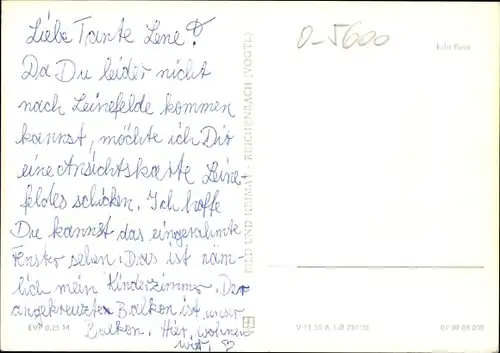 Liebe Tante Lene!
Da Du leider nicht
nach Leinefelde kommen
kannst, möchte ich Dir
eine Ansichtskarte Leine-
feldes schicken. Ich hoffe
Du kannst das eingerahmte
Fenster sehen. Das ist näm-
lich mein Kinderzimmer. Der
angekreuzten Balkon ist unser
Balkon. Hier, wohnen
wir, ♡
EVP 0,25 M
BILD UND HEIMAT · REICHENBACH (VOGTL)
0-5600
Echt Foto
V 11 50